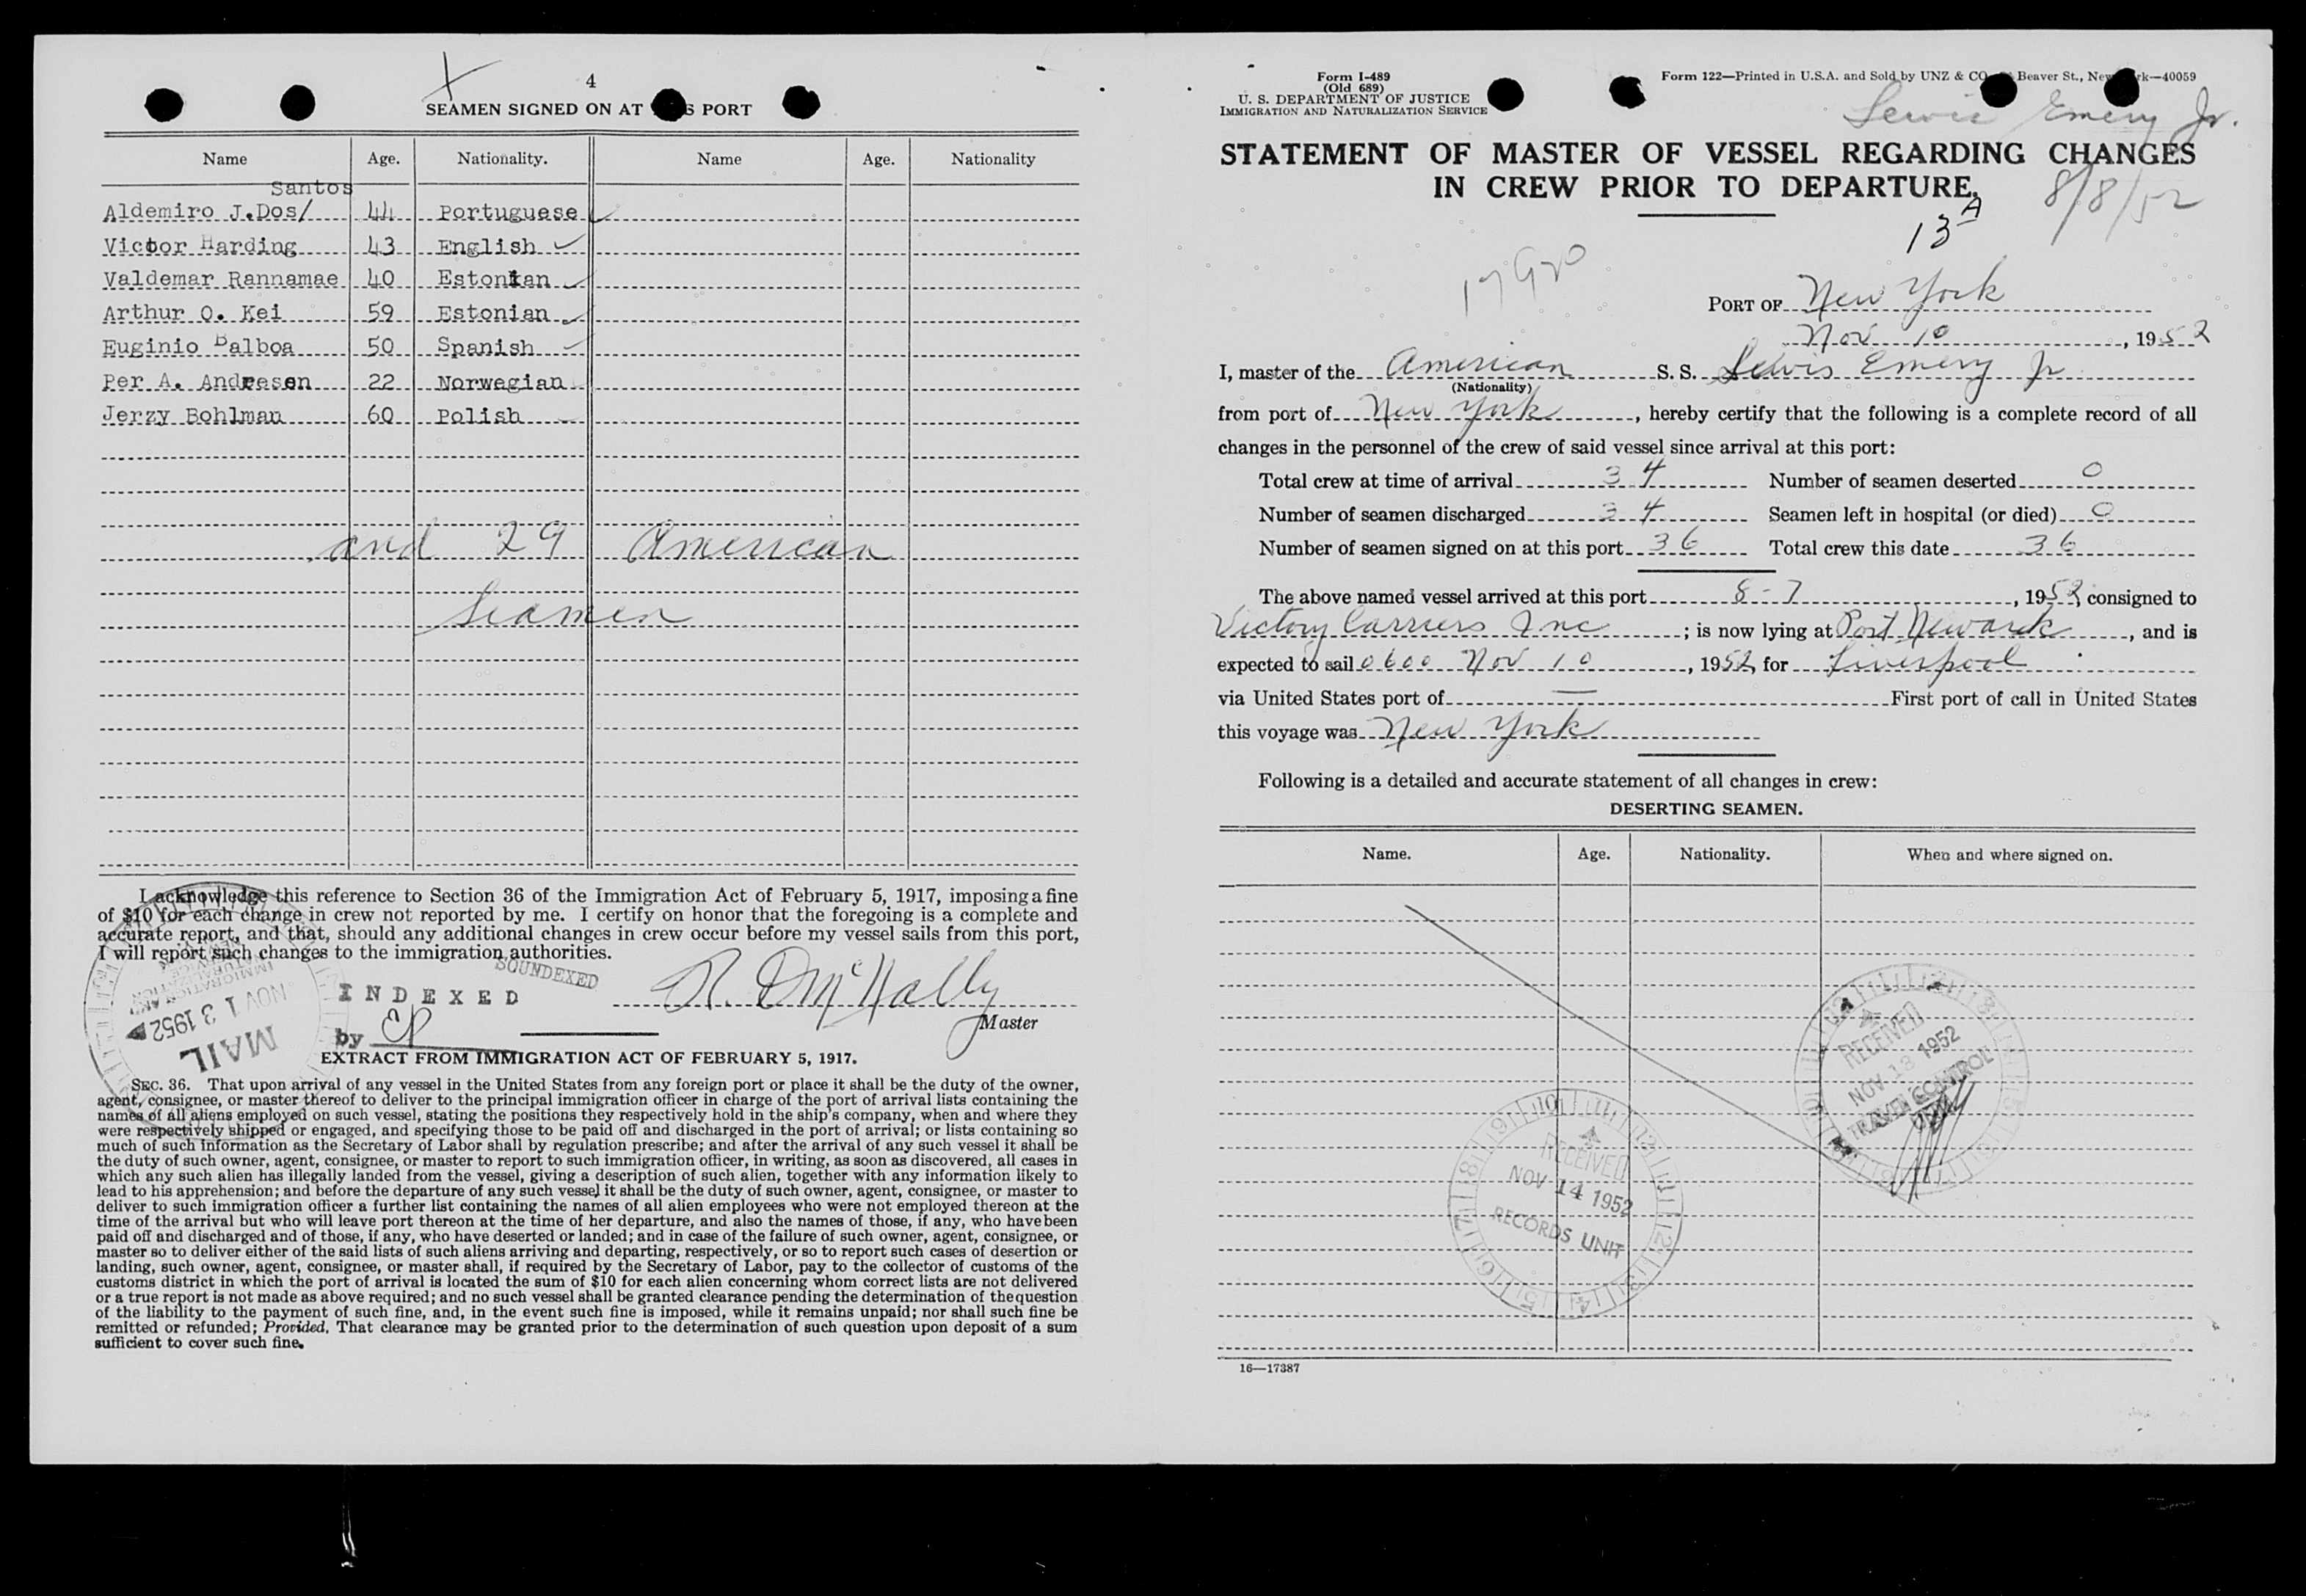 4
SEAMEN SIGNED ON AT S PORT
Name Age. Nationality. Name Age. Nationality
Santos
Aldemiro J.Dos/ 44 Portuguese
Victor Harding 43 English
Valdemar Rannamae 40 Estonian
Arthur O. Kei 59 Estonian
Euginio Balboa 50 Spanish
Per A. Andresen 22 Norwegian
Jerzy Bohlman 60 Polish
and 29 American
Seamen
I acknowledge this reference to Section 36 of the Immigration Act of February 5, 1917, imposing a fine
of $10 for each change in crew not reported by me. I certify on honor that the foregoing is a complete and
accurate report, and that, should any additional changes in crew occur before my vessel sails from this port,
I will report such changes to the immigration authorities.
SOUNDEXED
INDEXED
by
Master
MAIL
NOV 13 1952
EXTRACT FROM IMMIGRATION ACT OF FEBRUARY 5, 1917.
SEC. 36. That upon arrival of any vessel in the United States from any foreign port or place it shall be the duty of the owner,
agent, consignee, or master thereof to deliver to the principal immigration officer in charge of the port of arrival lists containing the
names of all aliens employed on such vessel, stating the positions they respectively hold in the ship's company, when and where they
were respectively shipped or engaged, and specifying those to be paid off and discharged in the port of arrival; or lists containing so
much of such information as the Secretary of Labor shall by regulation prescribe; and after the arrival of any such vessel it shall be
the duty of such owner, agent, consignee, or master to report to such immigration officer, in writing, as soon as discovered, all cases in
which any such alien has illegally landed from the vessel, giving a description of such alien, together with any information likely to
lead to his apprehension; and before the departure of any such vessel it shall be the duty of such owner, agent, consignee, or master to
deliver to such immigration officer a further list containing the names of all alien employees who were not employed thereon at the
time of the arrival but who will leave port thereon at the time of her departure, and also the names of those, if any, who have been
paid off and discharged and of those, if any, who have deserted or landed; and in case of the failure of such owner, agent, consignee, or
master so to deliver either of the said lists of such aliens arriving and departing, respectively, or so to report such cases of desertion or
landing, such owner, agent, consignee, or master shall, if required by the Secretary of Labor, pay to the collector of customs of the
customs district in which the port of arrival is located the sum of $10 for each alien concerning whom correct lists are not delivered
or a true report is not made as above required; and no such vessel shall be granted clearance pending the determination of the question
of the liability to the payment of such fine, and, in the event such fine is imposed, while it remains unpaid; nor shall such fine be
remitted or refunded; Provided, That clearance may be granted prior to the determination of such question upon deposit of a sum
sufficient to cover such fine.
Form I-489
(Old 689)
U. S. DEPARTMENT OF JUSTICE
IMMIGRATION AND NATURALIZATION SERVICE
Form 122—Printed in U.S.A. and Sold by UNZ & CO Beaver St., New rk—40059
Lewis Emery Jr.
STATEMENT OF MASTER OF VESSEL REGARDING CHANGES
IN CREW PRIOR TO DEPARTURE.
8/8/52
13A
PORT OF New York
Nov 10, 1952
I, master of the American S. S. Lewis Emery Jr
(Nationality)
from port of New York, hereby certify that the following is a complete record of all
changes in the personnel of the crew of said vessel since arrival at this port:
Total crew at time of arrival 34 Number of seamen deserted 0
Number of seamen discharged 34 Seamen left in hospital (or died) 0
Number of seamen signed on at this port 36 Total crew this date 36
The above named vessel arrived at this port 8-7, 1952, consigned to
Victory Carriers Inc; is now lying at Port Newark, and is
expected to sail 0600 Nov 10, 1952, for Liverpool
via United States port of — First port of call in United States
this voyage was New York
Following is a detailed and accurate statement of all changes in crew:
DESERTING SEAMEN.
Name. Age. Nationality. When and where signed on.
RECEIVED
NOV 13 1952
TRAVEL CONTROL
UNIT
RECEIVED
NOV 14 1952
RECORDS UNIT
16—17387